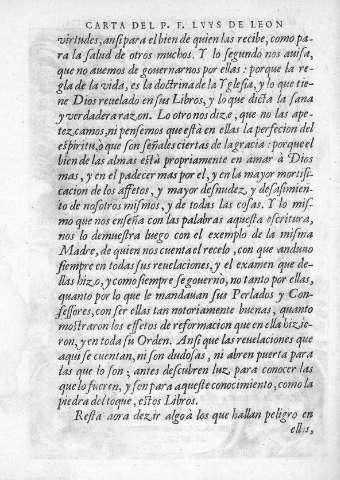 CARTA DEL P. F. LVYS DE LEON
virtudes, ansi para el bien de quien las recibe, como pa-
ra la salud de otros muchos. Y lo segundo nos auisa,
que no auemos de gouernarnos por ellas: porque la re-
gla de la vida, es la doctrina de la Yglesia, y lo que tie-
ne Dios reuelado en sus Libros, y lo que dicta la sana
y verdadera razon. Lo otro nos dize, que no las ape-
tezcamos, ni pensemos que està en ellas la perfecion del
espiritu, ò que son señales ciertas de la gracia: porque el
bien de las almas està propriamente en amar à Dios
mas, y en el padecer mas por el, y en la mayor mortifi-
cacion de los affetos, y mayor desnudez, y desasimien-
to de nosotros mismos, y de todas las cosas. Y lo mis-
mo que nos enseña con las palabras aquesta escritura,
nos lo demuestra luego con el exemplo de la misma
Madre, de quien nos cuenta el recelo, con que anduuo
siempre en todas sus reuelaciones, y el examen que de-
llas hizo, y como siempre se gouerno, no tanto por ellas,
quanto por lo que le mandauan sus Perlados y Con-
fessores, con ser ellas tan notoriamente buenas, quanto
mostraron los effetos de reformacion que en ella hizie-
ron, y en toda su Orden. Ansi que las reuelaciones que
aqui se cuentan, ni son dudosas, ni abren puerta para
las que lo son; antes descubren luz, para conocer las
que lo fueren, y son para aqueste conocimiento, como la
piedra del toque, estos Libros.
Resta aora dezir algo à los que hallan peligro en
ellos,